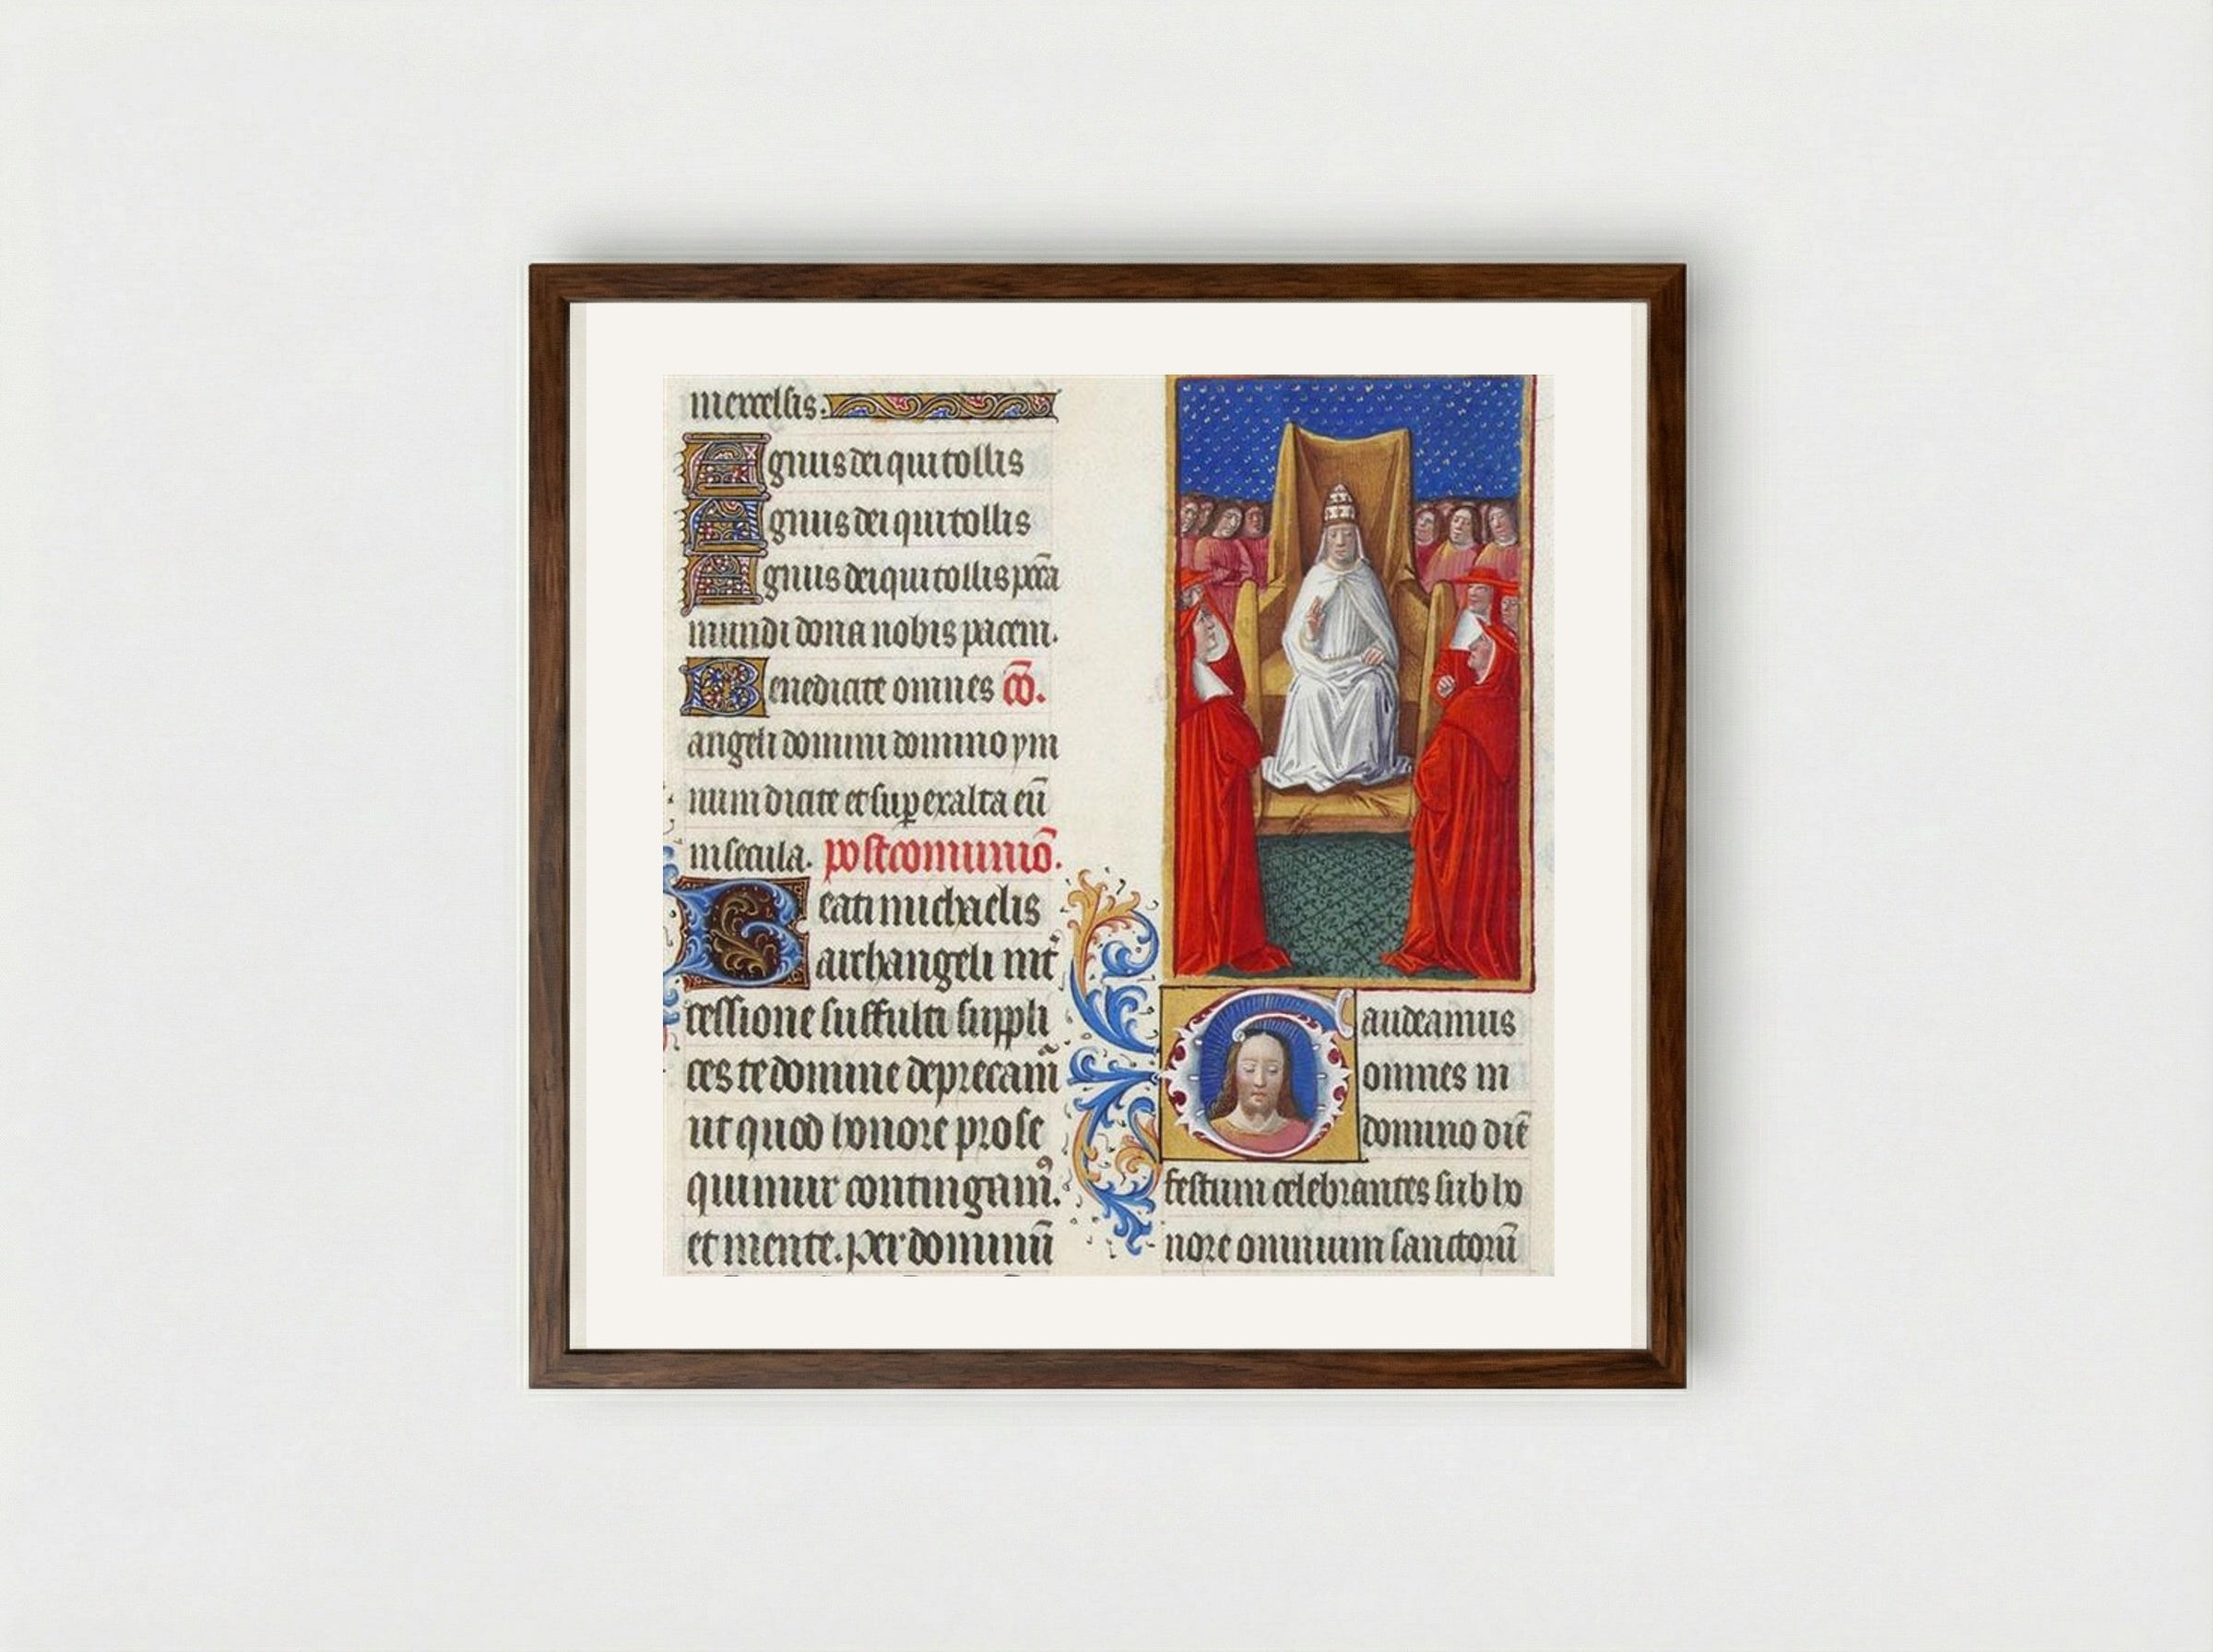 in excelsis.
Agnus dei qui tollis
Agnus dei qui tollis
Agnus dei qui tollis pccã
mundi dona nobis pacem.
Benedicite omnes cõ.
angeli domini domino ym
num dicite et suꝑexalta eũ
in secula. postcomuniõ.
Beati michaelis
archangeli int̾
cessione suffulti suppli
ces te domine deprecam̃
ut quod honore prose
quimur contingam⁹.
et mente. per dominũ
Gaudeamus
omnes in
domino diẽ
festum celebrantes sub ho
nore omnium sanctorũ